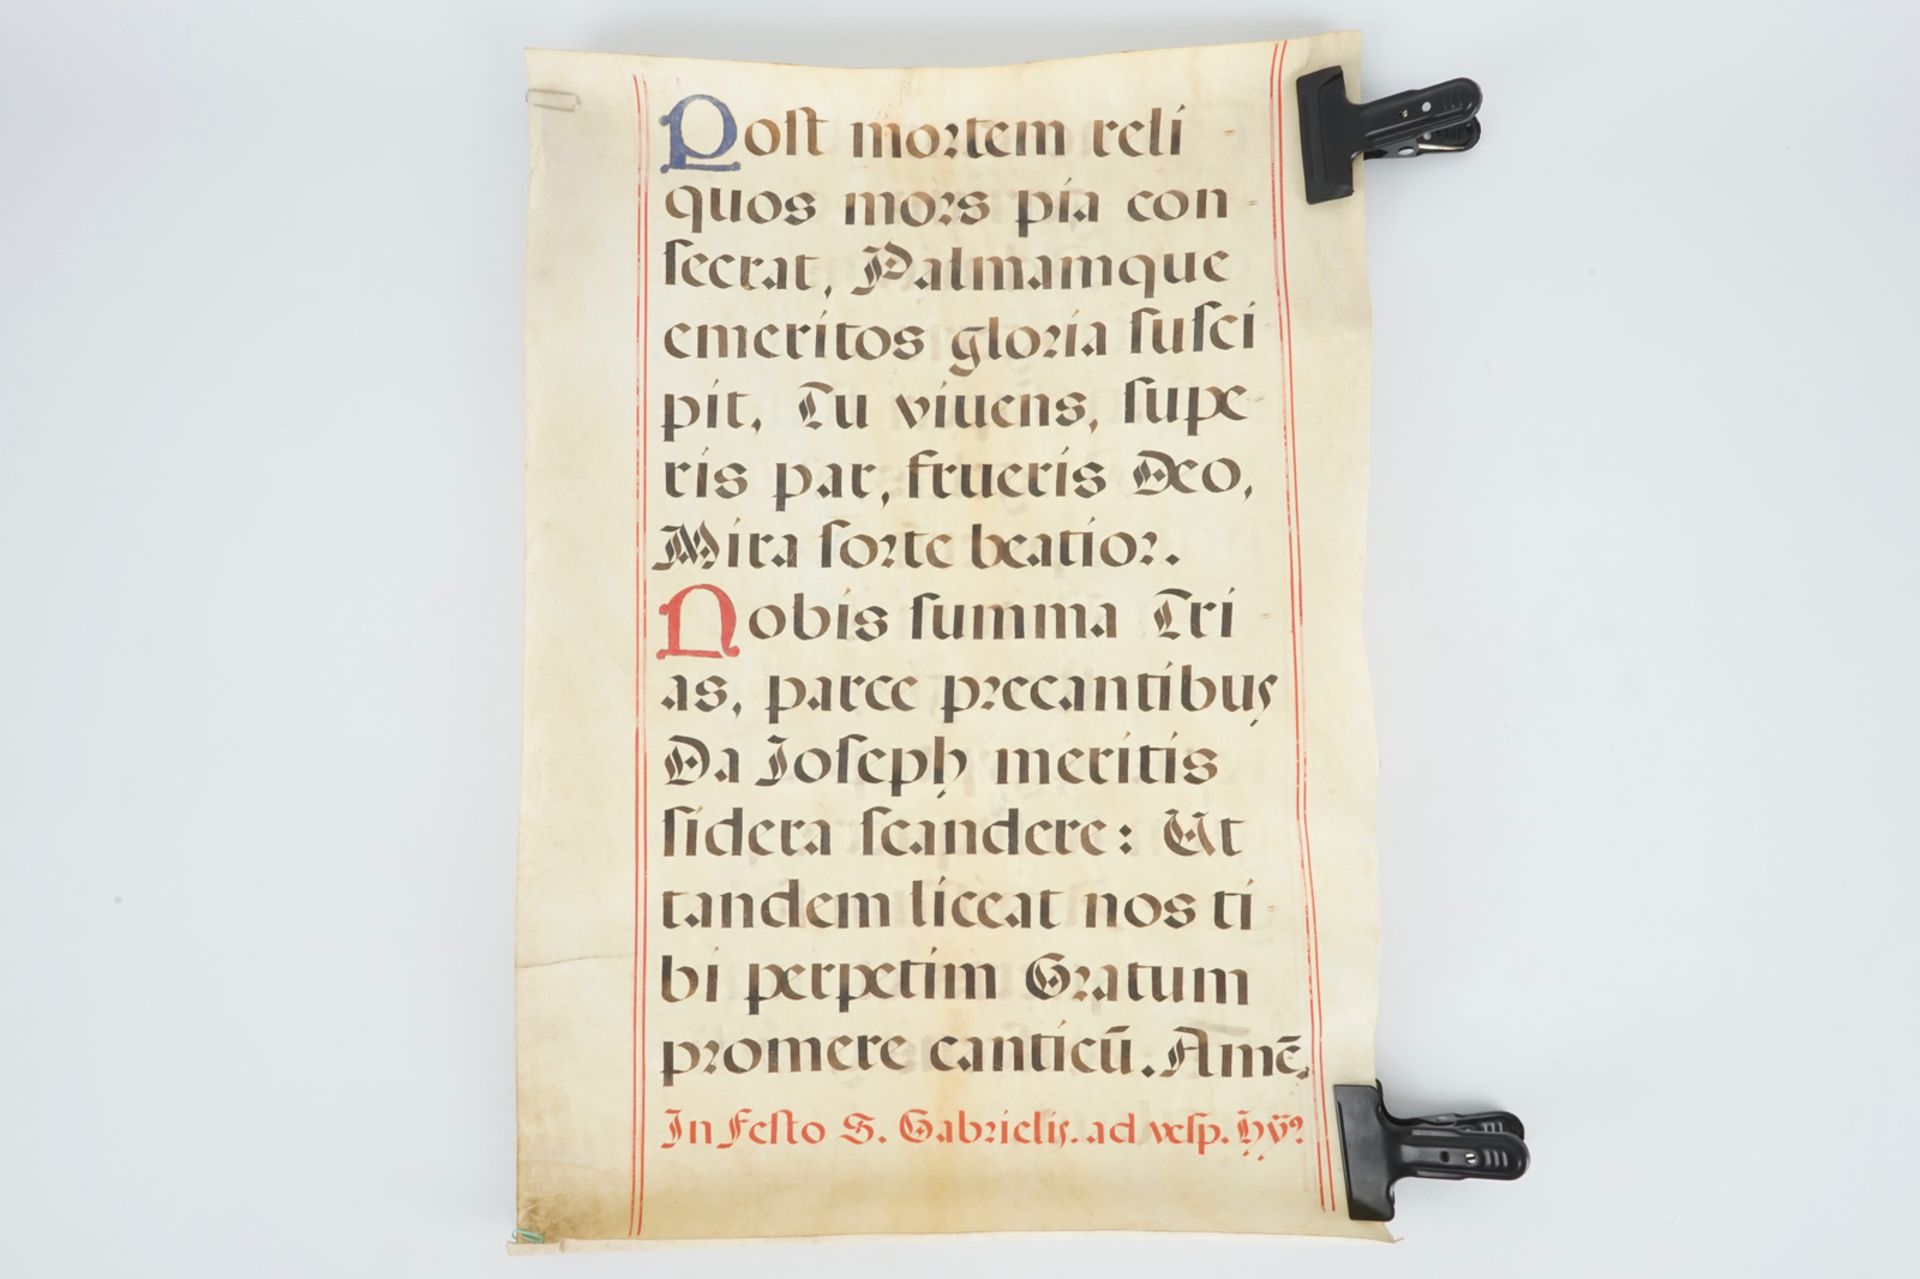 Poſt mortem reli
quos mors pia con
ſecrat, Palmamque
emeritos gloria ſuſci
pit, Tu viuens, ſupe
ris par, frueris Deo,
Mira ſorte beatior.
Nobis ſumma Tri
as, parce precantibus
Da Ioſeph meritis
ſidera ſcandere: Ut
tandem liceat nos ti
bi perpetim Gratum
promere canticū. Amē,
In Feſto S. Gabrielis. ad veſp. hỹ?